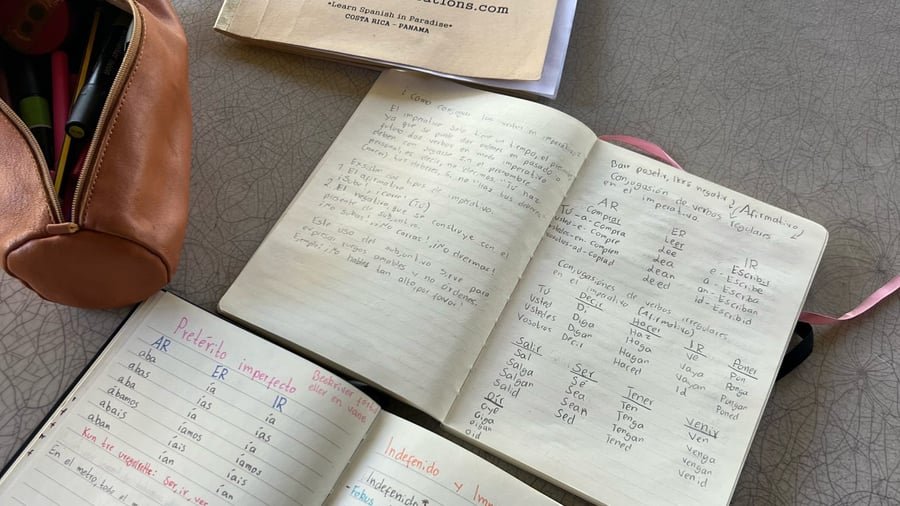 ations.com
*Learn Spanish in Paradise*
COSTA RICA - PANAMA
¿Como conjugar los verbos en imperativo?
El imperativo solo tiene un tiempo, el presente
ya que no se puede dar órdenes en pasado o
futuro. Los verbos en modo imperativo
deben
es decir, no decimos "Tú haz
tus deberes", si no "Haz tus deberes".
Existen dos tipos de imperativo.
1. El afirmativo (TÚ)
¡Sube!, ¡corre!
2. El negativo, que se construye con el
presente de subjuntivo.
¡No subas!, ¡No corras!, ¡No duermas!
Este uso del subjuntivo sirve para
expresar ruegos amables y no órdenes.
¡No hables tan
alto, por favor!
Bare positiv, ikke negativ (Afirmativo)
Conjugasión de verbos regulares
en el imperativo
AR
Comprar
Tú -a- Compra
usted -e- Compre
ustedes -en- Compren
vosotros -ad- Comprad
ER
Leer
lee
lea
lean
leed
IR
Escribir
e - Escribe
a - Escriba
an - Escriban
id - Escribid
Conjugasiones de verbos irregulares
en el imperativo (Afirmativo)
Tú
Usted
Ustedes
Vosotros
Decir
Di
Diga
Digan
Decid
Hacer
Haz
Haga
Hagan
Haced
IR
Ve
vaya
vayan
id
Poner
Pon
Ponga
Pongan
Poned
Salir
Sal
Salga
Salgan
Salid
Ser
Sé
Sea
Sean
Sed
Tener
Ten
Tenga
Tengan
Tened
Venir
Ven
venga
vengan
venid
Oír
Oye
Oiga
Oigan
oid
Pretérito imperfecto
AR
aba
abas
aba
ábamos
abais
aban
ER
ía
ías
ía
íamos
íais
ían
IR
ía
ías
ía
íamos
íais
ían
Beskriver
eller en vane
Kun tre uregelrette: Ser, ir, ver
En el metro, todo el
Indefenido
y Im
Indefenido
-Fokus